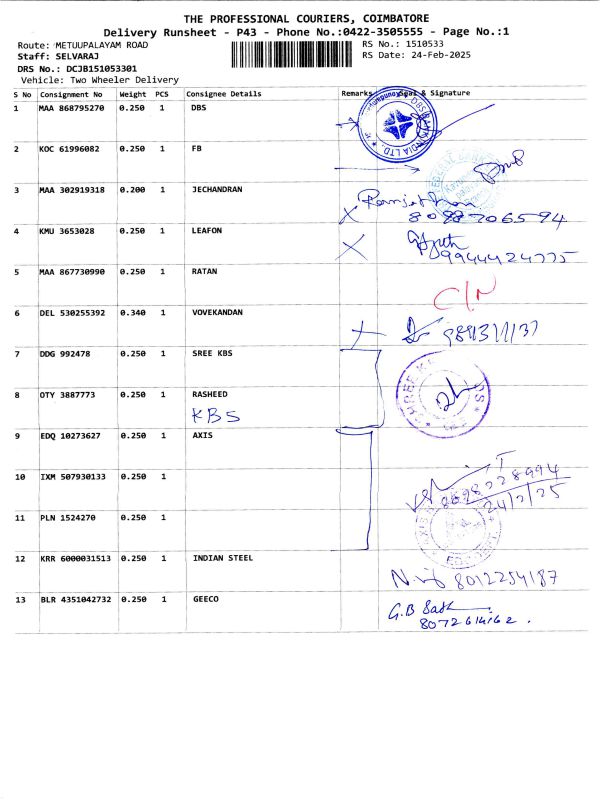 THE PROFESSIONAL COURIERS, COIMBATORE
Delivery Runsheet - P43 - Phone No.:0422-3505555 - Page No.:1
Route: METUUPALAYAM ROAD RS No.: 1510533
Staff: SELVARAJ RS Date: 24-Feb-2025
DRS No.: DCJB151053301
Vehicle: Two Wheeler Delivery
S No Consignment No Weight PCS Consignee Details Remarks Seal & Signature
1 MAA 868795270 0.250 1 DBS
2 KOC 61996082 0.250 1 FB
3 MAA 302919318 0.200 1 JECHANDRAN
8098706594
4 KMU 3653028 0.250 1 LEAFON
9944424775
5 MAA 867730990 0.250 1 RATAN
C/N
6 DEL 530255392 0.340 1 VOVEKANDAN
7 DDG 992478 0.250 1 SREE KBS
8 OTY 3887773 0.250 1 RASHEED
KBS
9 EDQ 10273627 0.250 1 AXIS
10 IXM 507930133 0.250 1
24/2/25
11 PLN 1524270 0.250 1
12 KRR 6000031513 0.250 1 INDIAN STEEL
8012254187
13 BLR 4351042732 0.250 1 GEECO
G.B
8072614162.